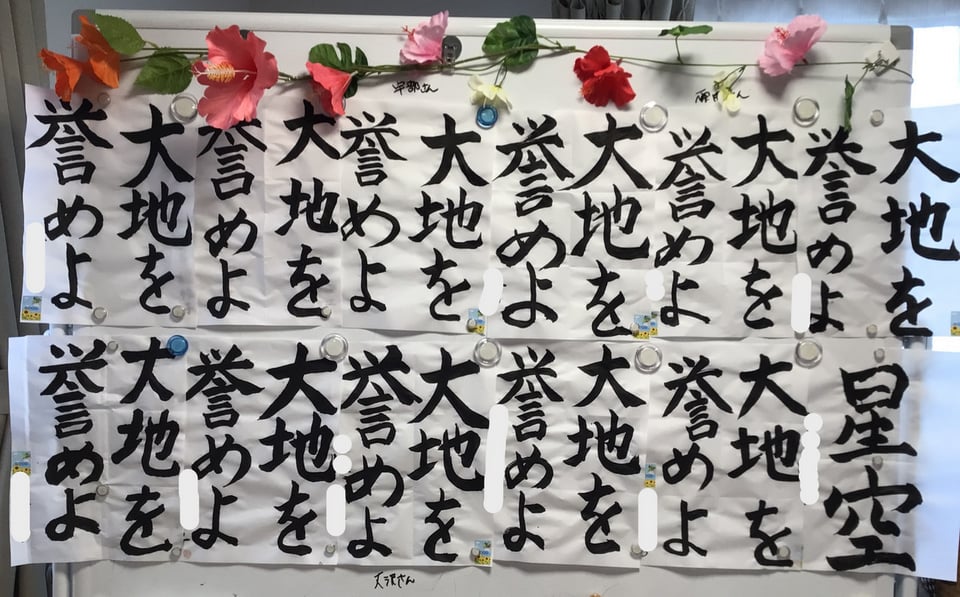 宇部さん
大地を
誉めよ
大地を
誉めよ
大地を
誉めよ
大地を
誉めよ
大地を
誉めよ
大地を
誉めよ
星空
大地を
誉めよ
大地を
誉めよ
大地を
誉めよ
大地を
誉めよ
大地を
誉めよ